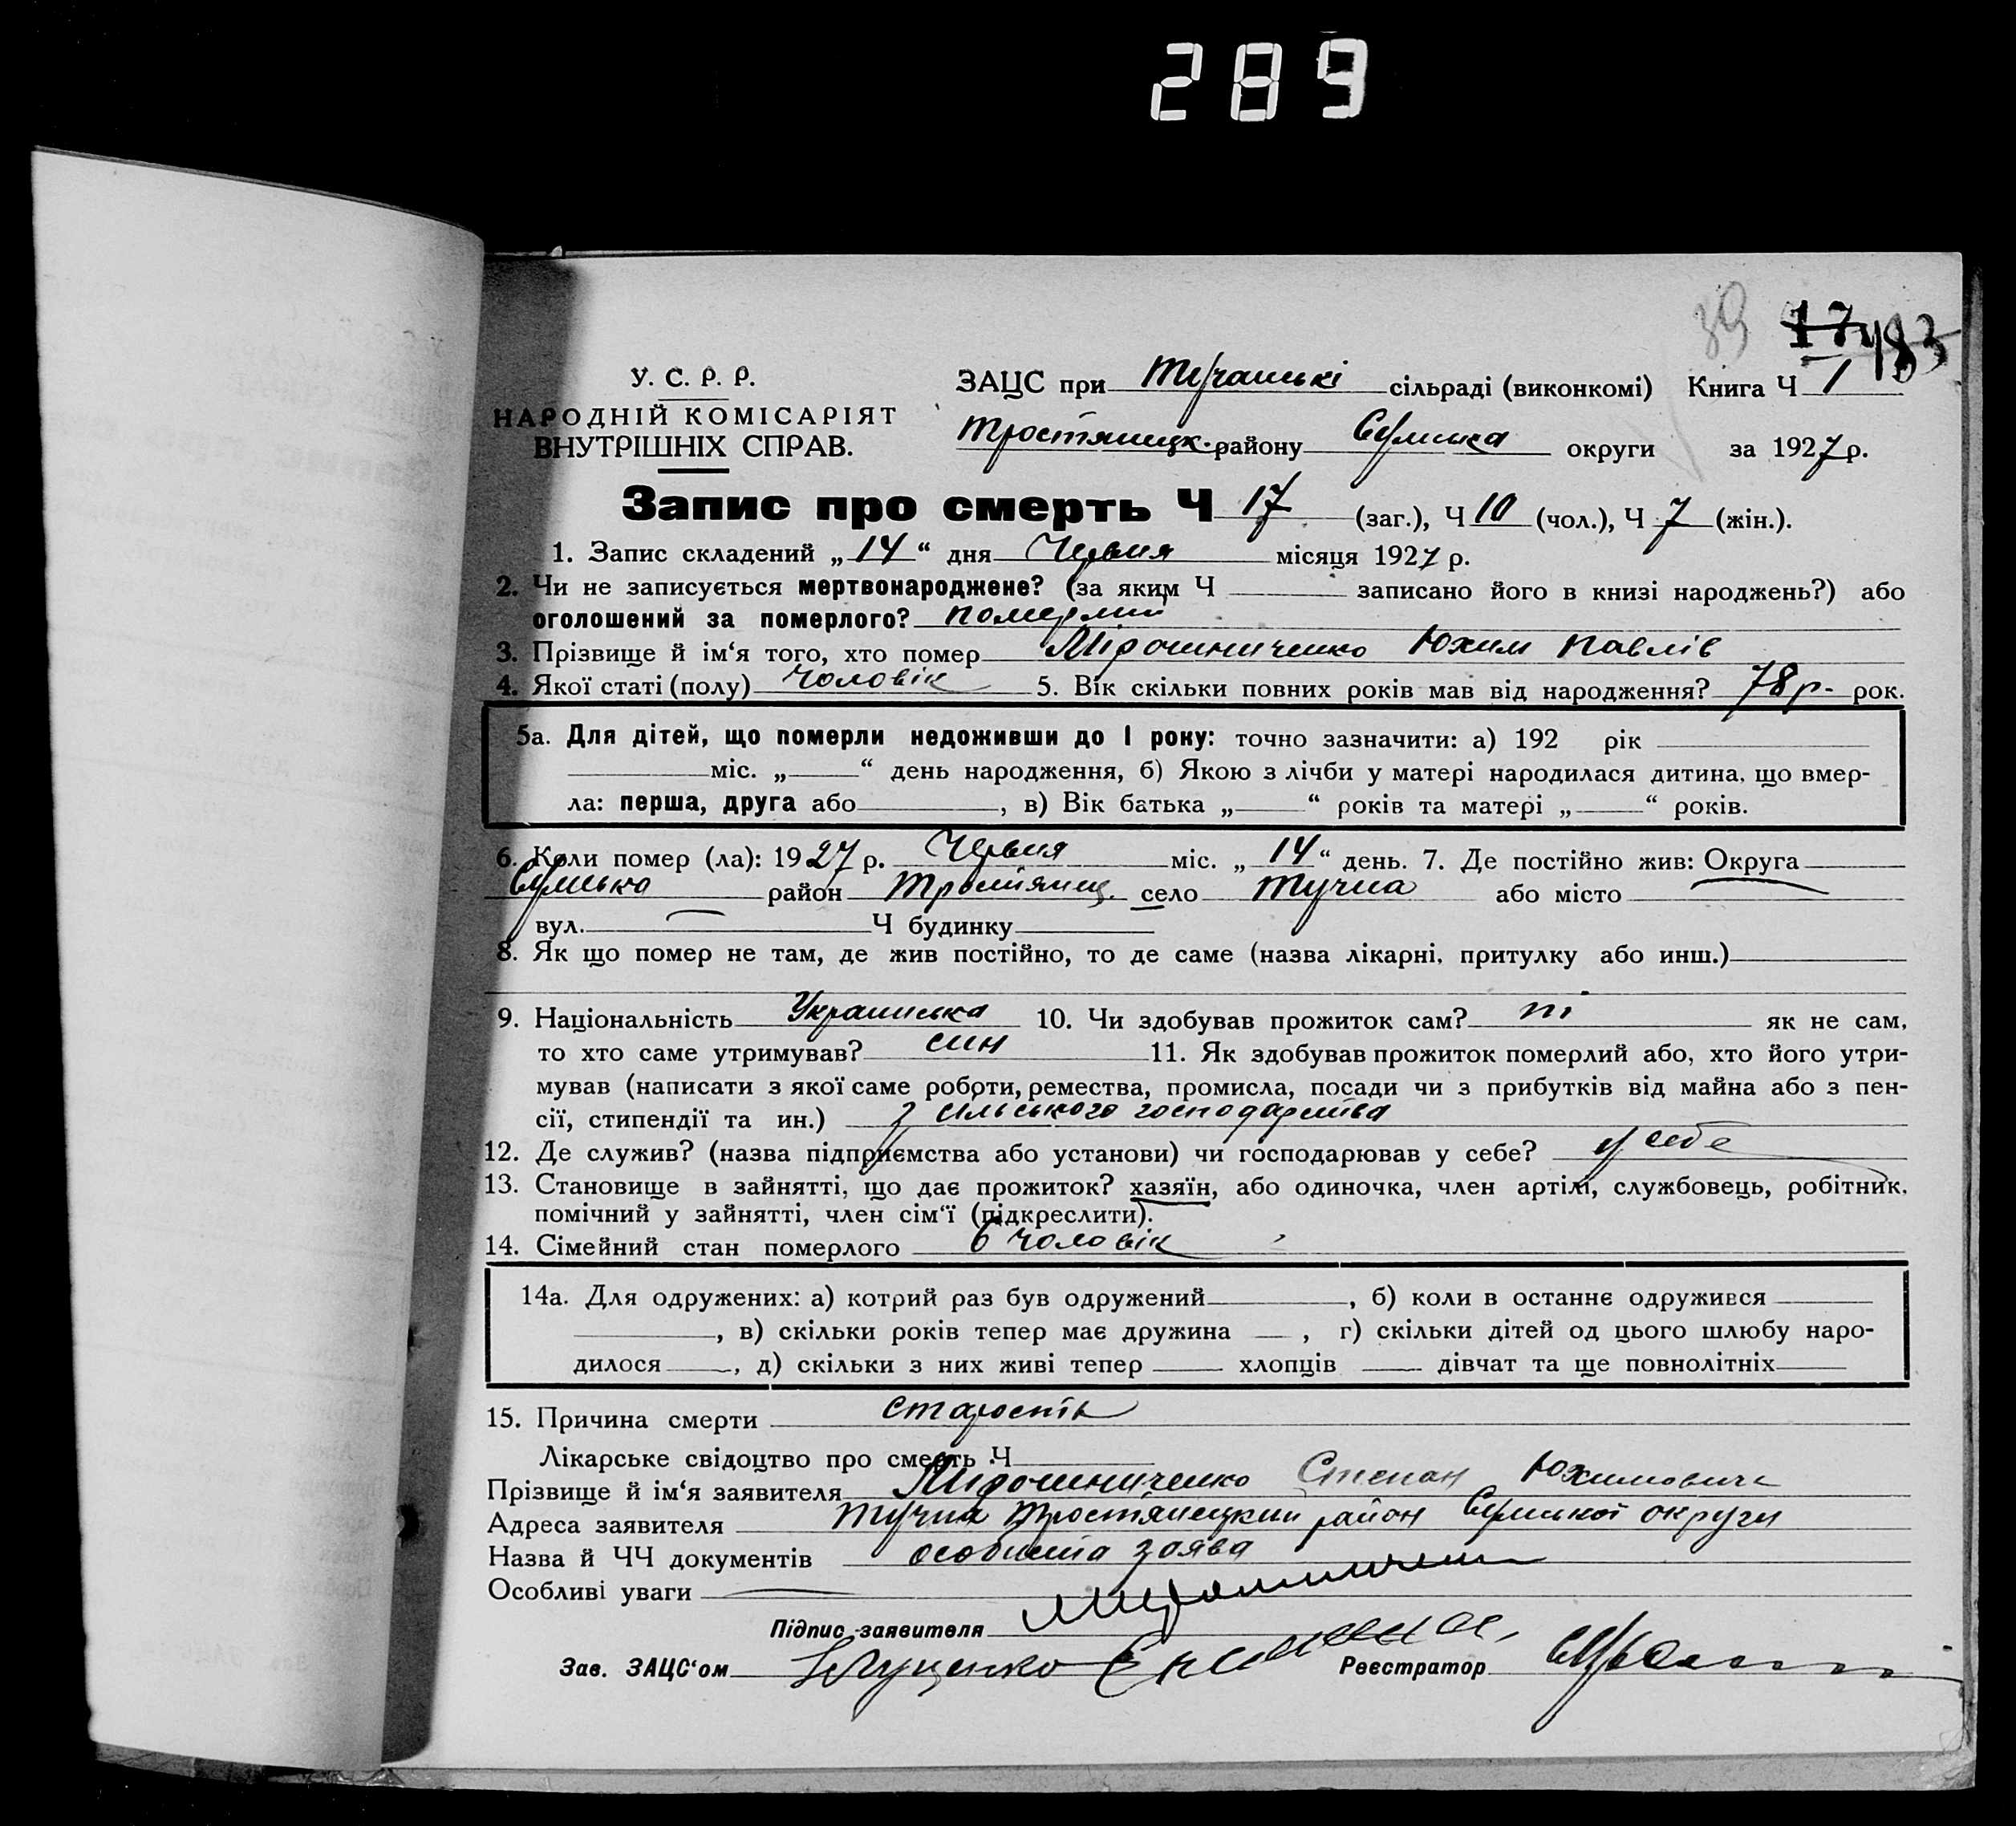 289
39 17 183
У. С. Р. Р.
НАРОДНІЙ КОМІСАРІЯТ
ВНУТРІШНІХ СПРАВ.
ЗАЦС при Тучанські сільраді (виконкомі) Книга Ч 1
Тростянецк. району Сумська округи за 1927 р.
Запис про смерть Ч 17 (заг.), Ч 10 (чол.), Ч 7 (жін.).
1. Запис складений „14“ дня Червня місяця 1927 р.
2. Чи не записується мертвонароджене? (за яким Ч записано його в книзі народжень?) або
оголошений за померлого? померлий
3. Прізвище й ім‘я того, хто помер Мірошниченко Юхим Павлів
4. Якої статі (полу) Чоловік 5. Вік скільки повних років мав від народження? 78 р. рок.
5а. Для дітей, що померли недоживши до 1 року: точно зазначити: а) 192 рік
міс. „ “ день народження, б) Якою з лічби у матері народилася дитина, що вмер-
ла: перша, друга або , в) Вік батька „ “ років та матері „ “ років.
6. Коли помер (ла): 1927 р. Червня міс. „14“ день. 7. Де постійно жив: Округа
Сумська район Тростянец. село Тучна або місто
вул. Ч будинку
8. Як що помер не там, де жив постійно, то де саме (назва лікарні, притулку або инш.)
9. Національність Украинська 10. Чи здобував прожиток сам? ні як не сам,
то хто саме утримував? син 11. Як здобував прожиток померлий або, хто його утри-
мував (написати з якої саме роботи, ремества, промисла, посади чи з прибутків від майна або з пен-
сії, стипендії та ин.) з сільського господарства
12. Де служив? (назва підприємства або установи) чи господарював у себе? у себе
13. Становище в зайнятті, що дає прожиток? хазяїн, або одиночка, член артілі, службовець, робітник,
помічний у зайнятті, член сім‘ї (підкреслити).
14. Сімейний стан померлого 6 чоловік
14а. Для одружених: а) котрий раз був одружений , б) коли в останнє одружився
, в) скільки років тепер має дружина , г) скільки дітей од цього шлюбу наро-
дилося , д) скільки з них живі тепер хлопців дівчат та ще повнолітніх
15. Причина смерти старость
Лікарське свідоцтво про смерть Ч
Прізвище й ім‘я заявителя Мирошниченко Степан Юхимович
Адреса заявителя Тучна Тростянецкий район Сумської округи
Назва й ЧЧ документів особиста заява
Особливі уваги
Підпис заявителя Мирошничен
Зав. ЗАЦС‘ом Реєстратор